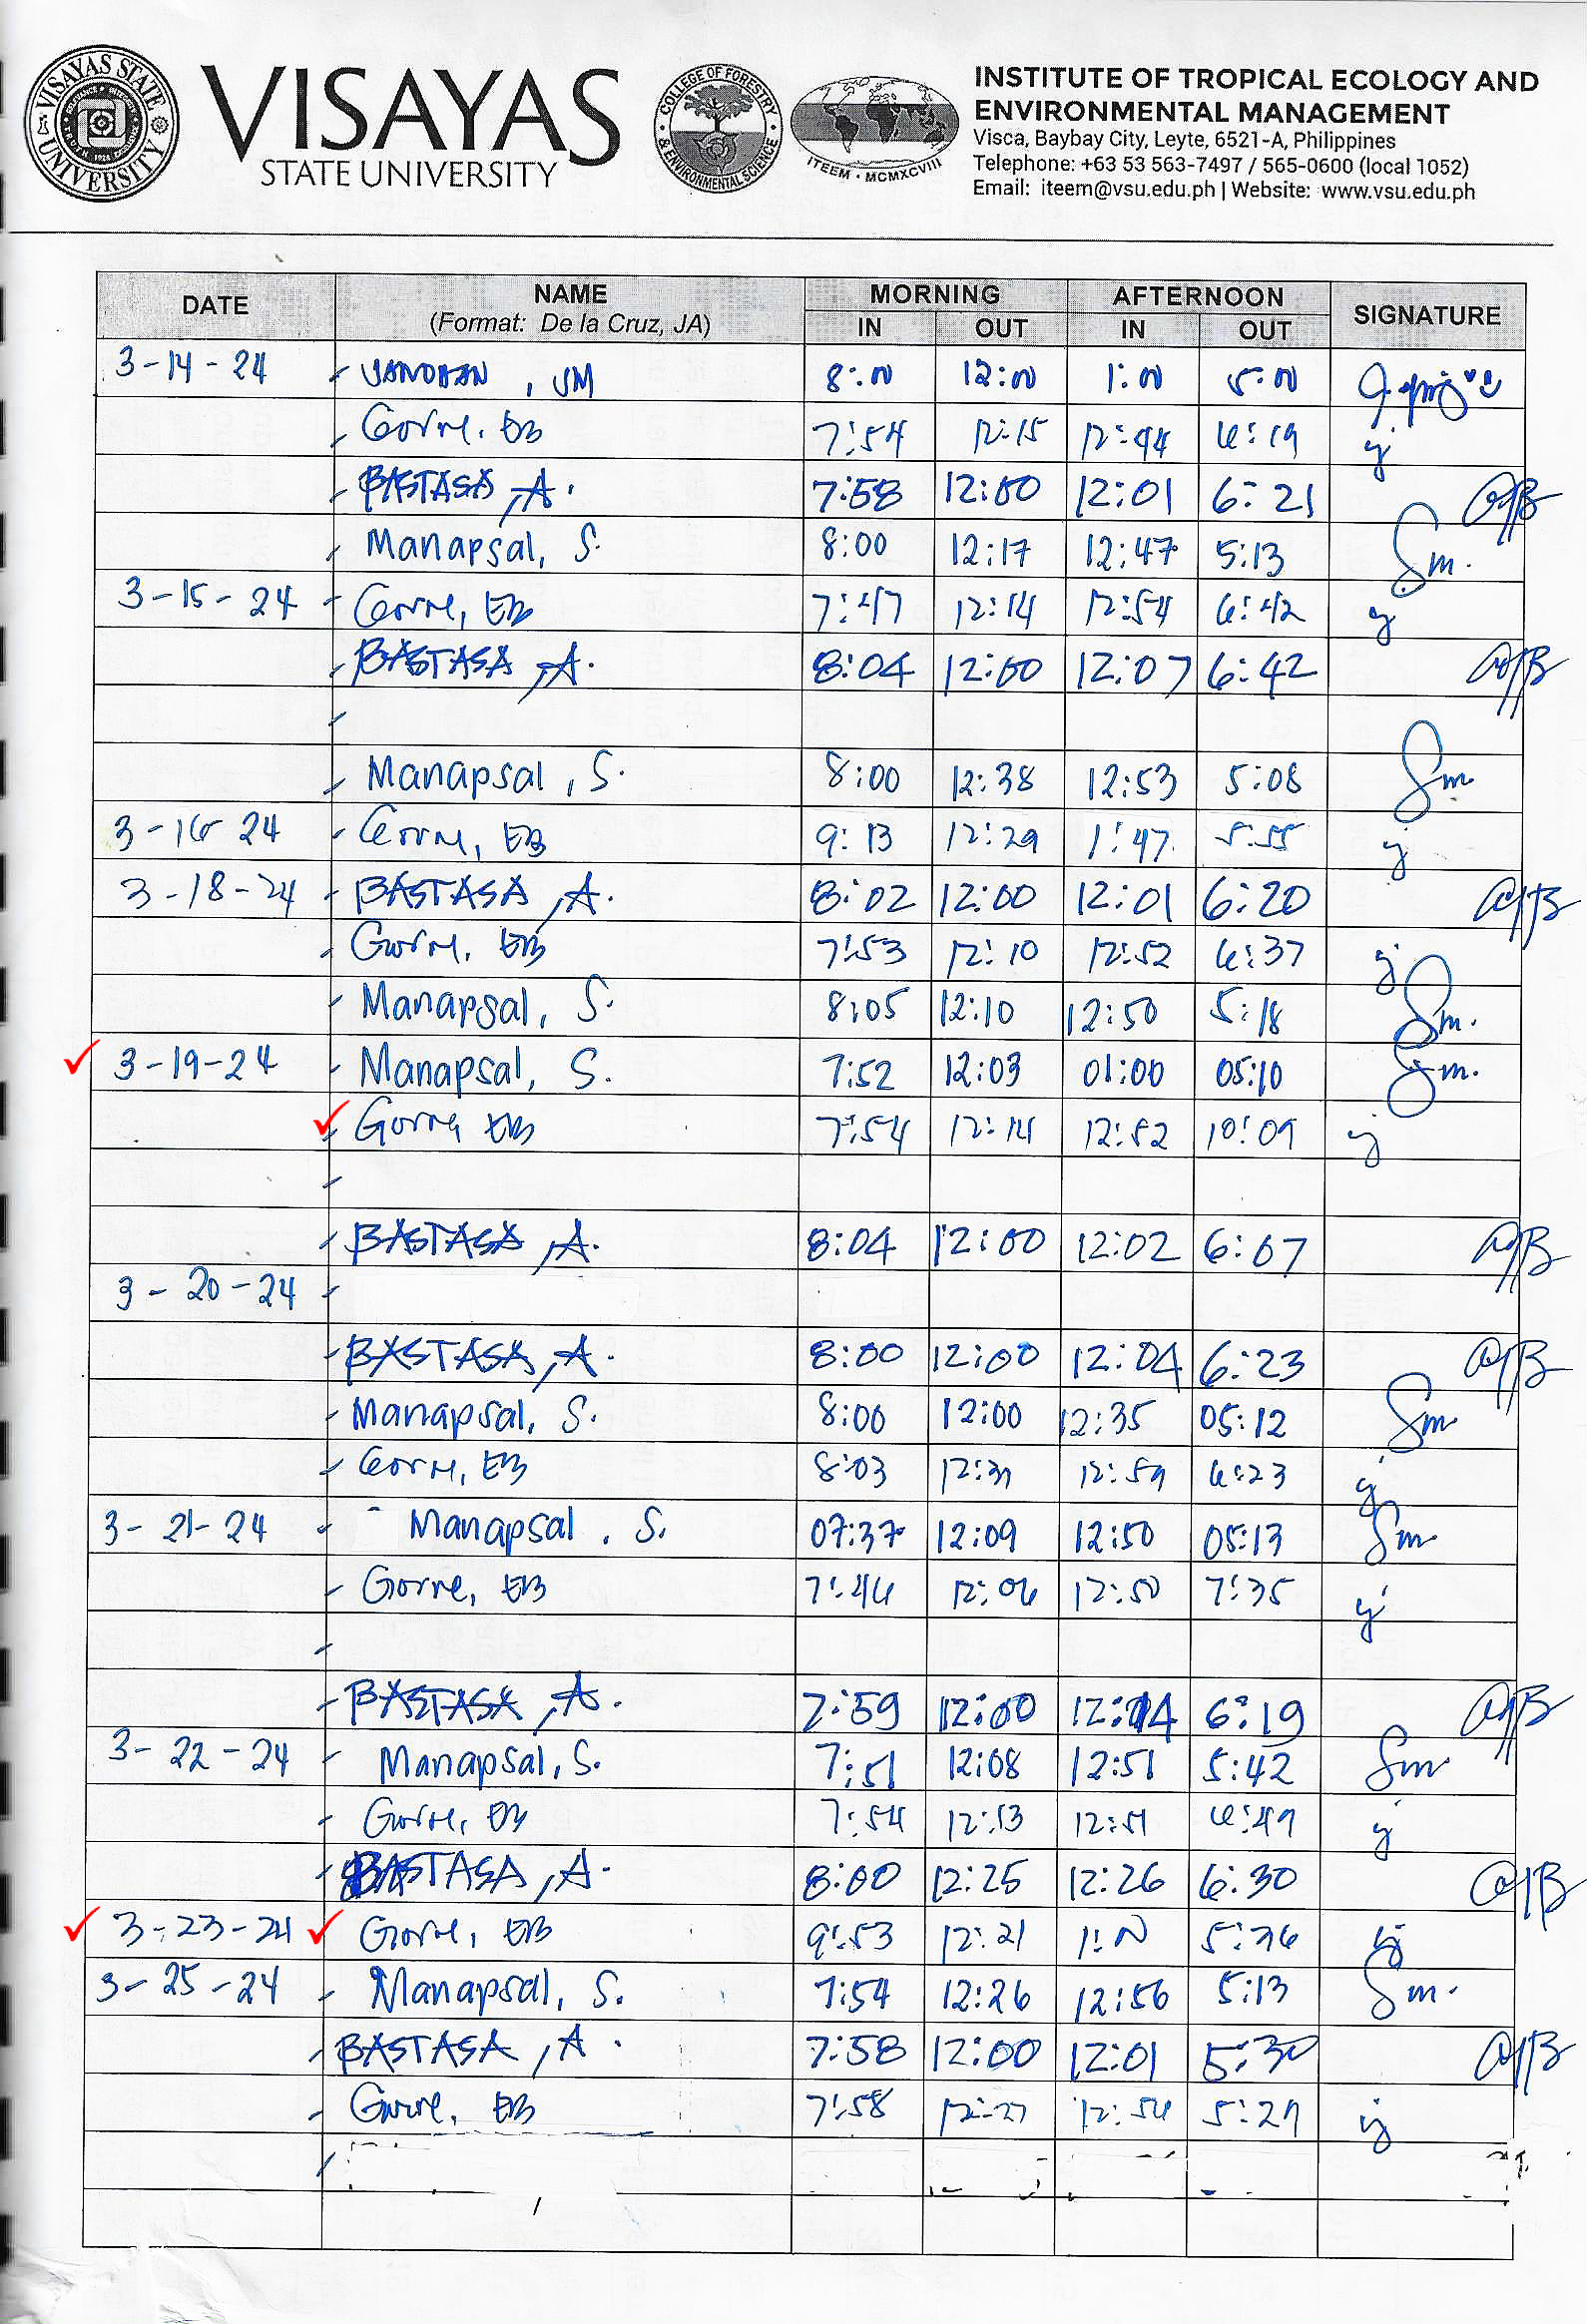 VISAYAS STATE UNIVERSITY
VISAYAS
STATE UNIVERSITY
COLLEGE OF FORESTRY
& ENVIRONMENTAL SCIENCE
ITEEM • MCMXCVIII
INSTITUTE OF TROPICAL ECOLOGY AND
ENVIRONMENTAL MANAGEMENT
Visca, Baybay City, Leyte, 6521-A, Philippines
Telephone: +63 53 563-7497 / 565-0600 (local 1052)
Email: iteem@vsu.edu.ph | Website: www.vsu.edu.ph
DATE NAME MORNING AFTERNOON SIGNATURE
(Format: De la Cruz, JA) IN OUT IN OUT
3-14-24 , JM 8:00 12:00 1:00 5:00
Gorne, EB 7:54 12:15 12:44 6:19
BASTASA, A. 7:58 12:00 12:01 6:21
Manapsal, S. 8:00 12:17 12:47 5:13 Sm.
3-15-24 Gorne, EB 7:47 12:14 12:54 6:42
BASTASA, A. 8:04 12:00 12:07 6:42
Manapsal, S. 8:00 12:38 12:53 5:08 Sm
3-16-24 Gorne, EB 9:13 12:29 1:47 5:55
3-18-24 BASTASA, A. 8:02 12:00 12:01 6:20
Gorne, EB 7:53 12:10 12:52 6:37
Manapsal, S. 8:05 12:10 12:50 5:18 Sm.
3-19-24 Manapsal, S. 7:52 12:03 01:00 05:10 Sm.
Gorne, EB 7:54 12:14 12:52 10:09
BASTASA, A. 8:04 12:00 12:02 6:07
3-20-24
BASTASA, A. 8:00 12:00 12:04 6:23
Manapsal, S. 8:00 12:00 12:35 05:12 Sm
Gorne, EB 8:03 12:31 12:59 6:23
3-21-24 Manapsal, S. 07:37 12:09 12:50 05:13 Sm
Gorne, EB 7:46 12:06 12:50 7:35
BASTASA, A. 7:59 12:00 12:14 6:19
3-22-24 Manapsal, S. 7:51 12:08 12:51 5:42 Sm
Gorne, EB 7:54 12:13 12:51 6:49
BASTASA, A. 8:00 12:25 12:26 6:30
3-23-24 Gorne, EB 9:53 12:21 1:11 5:36
3-25-24 Manapsal, S. 7:54 12:26 12:56 5:13 Sm.
BASTASA, A. 7:58 12:00 12:01 5:30
Gorne, EB 7:58 12:27 12:56 5:29